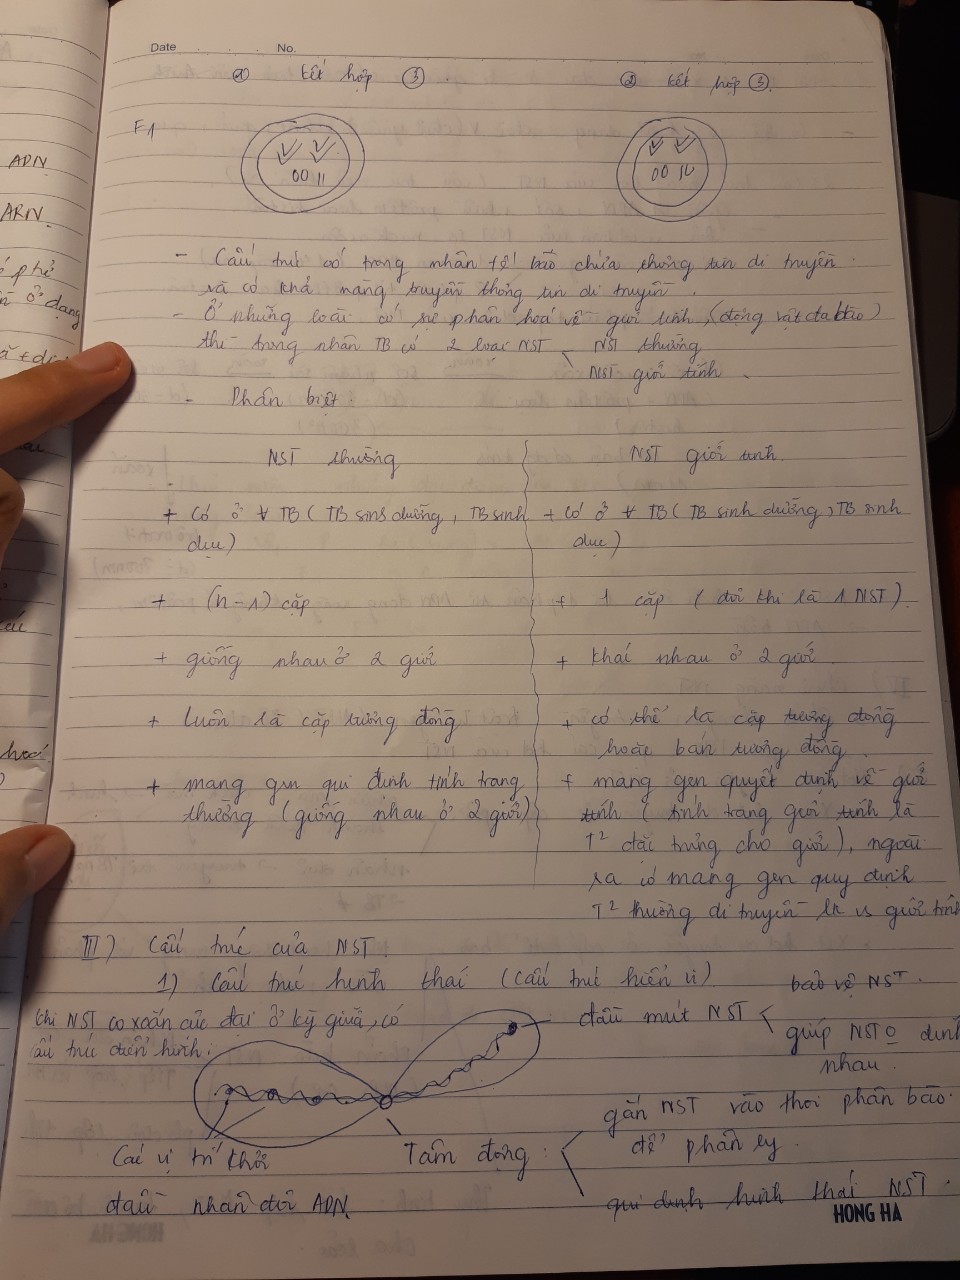 Date No.
① kết hợp ③.
② kết hợp ③.
F1
ADN
ARN
- Cấu trúc có trong nhân tế bào chứa thông tin di truyền
và có khả năng truyền thông tin di truyền.
- Ở những loài có sự phân hoá về giới tính, (động vật đa bào)
thì trong nhân TB có 2 loại NST - NST thường
NST giới tính.
- Phân biệt.
NST thường
NST giới tính
+ Có ở ∀ TB (TB sinh dưỡng, TB sinh
dục)
+ Có ở ∀ TB (TB sinh dưỡng, TB sinh
dục)
+ (n-1) cặp
+ 1 cặp (đôi khi là 1 NST).
+ giống nhau ở 2 giới
+ khác nhau ở 2 giới
+ luôn là cặp tương đồng
+ có thể là cặp tương đồng
hoặc bán tương đồng
+ mang gen qui định tính trạng
thường (giống nhau ở 2 giới)
+ mang gen quyết định về giới
tính (tính trạng giới tính là
T² đặc trưng cho giới), ngoài
ra có mang gen quy định
T² thường di truyền lk vs giới tính
III) Cấu trúc của NST.
1) Cấu trúc hình thái (cấu trúc hiển vi)
Khi NST co xoắn cực đại ở kỳ giữa, có
cấu trúc điển hình:
đầu mút NST
bảo vệ NST.
giúp NST o dính
nhau
Các vị trí khởi
đầu nhân đôi ADN.
Tâm động:
gắn NST vào thoi phân bào
để phân ly.
qui định hình thái NST.
HONG HA